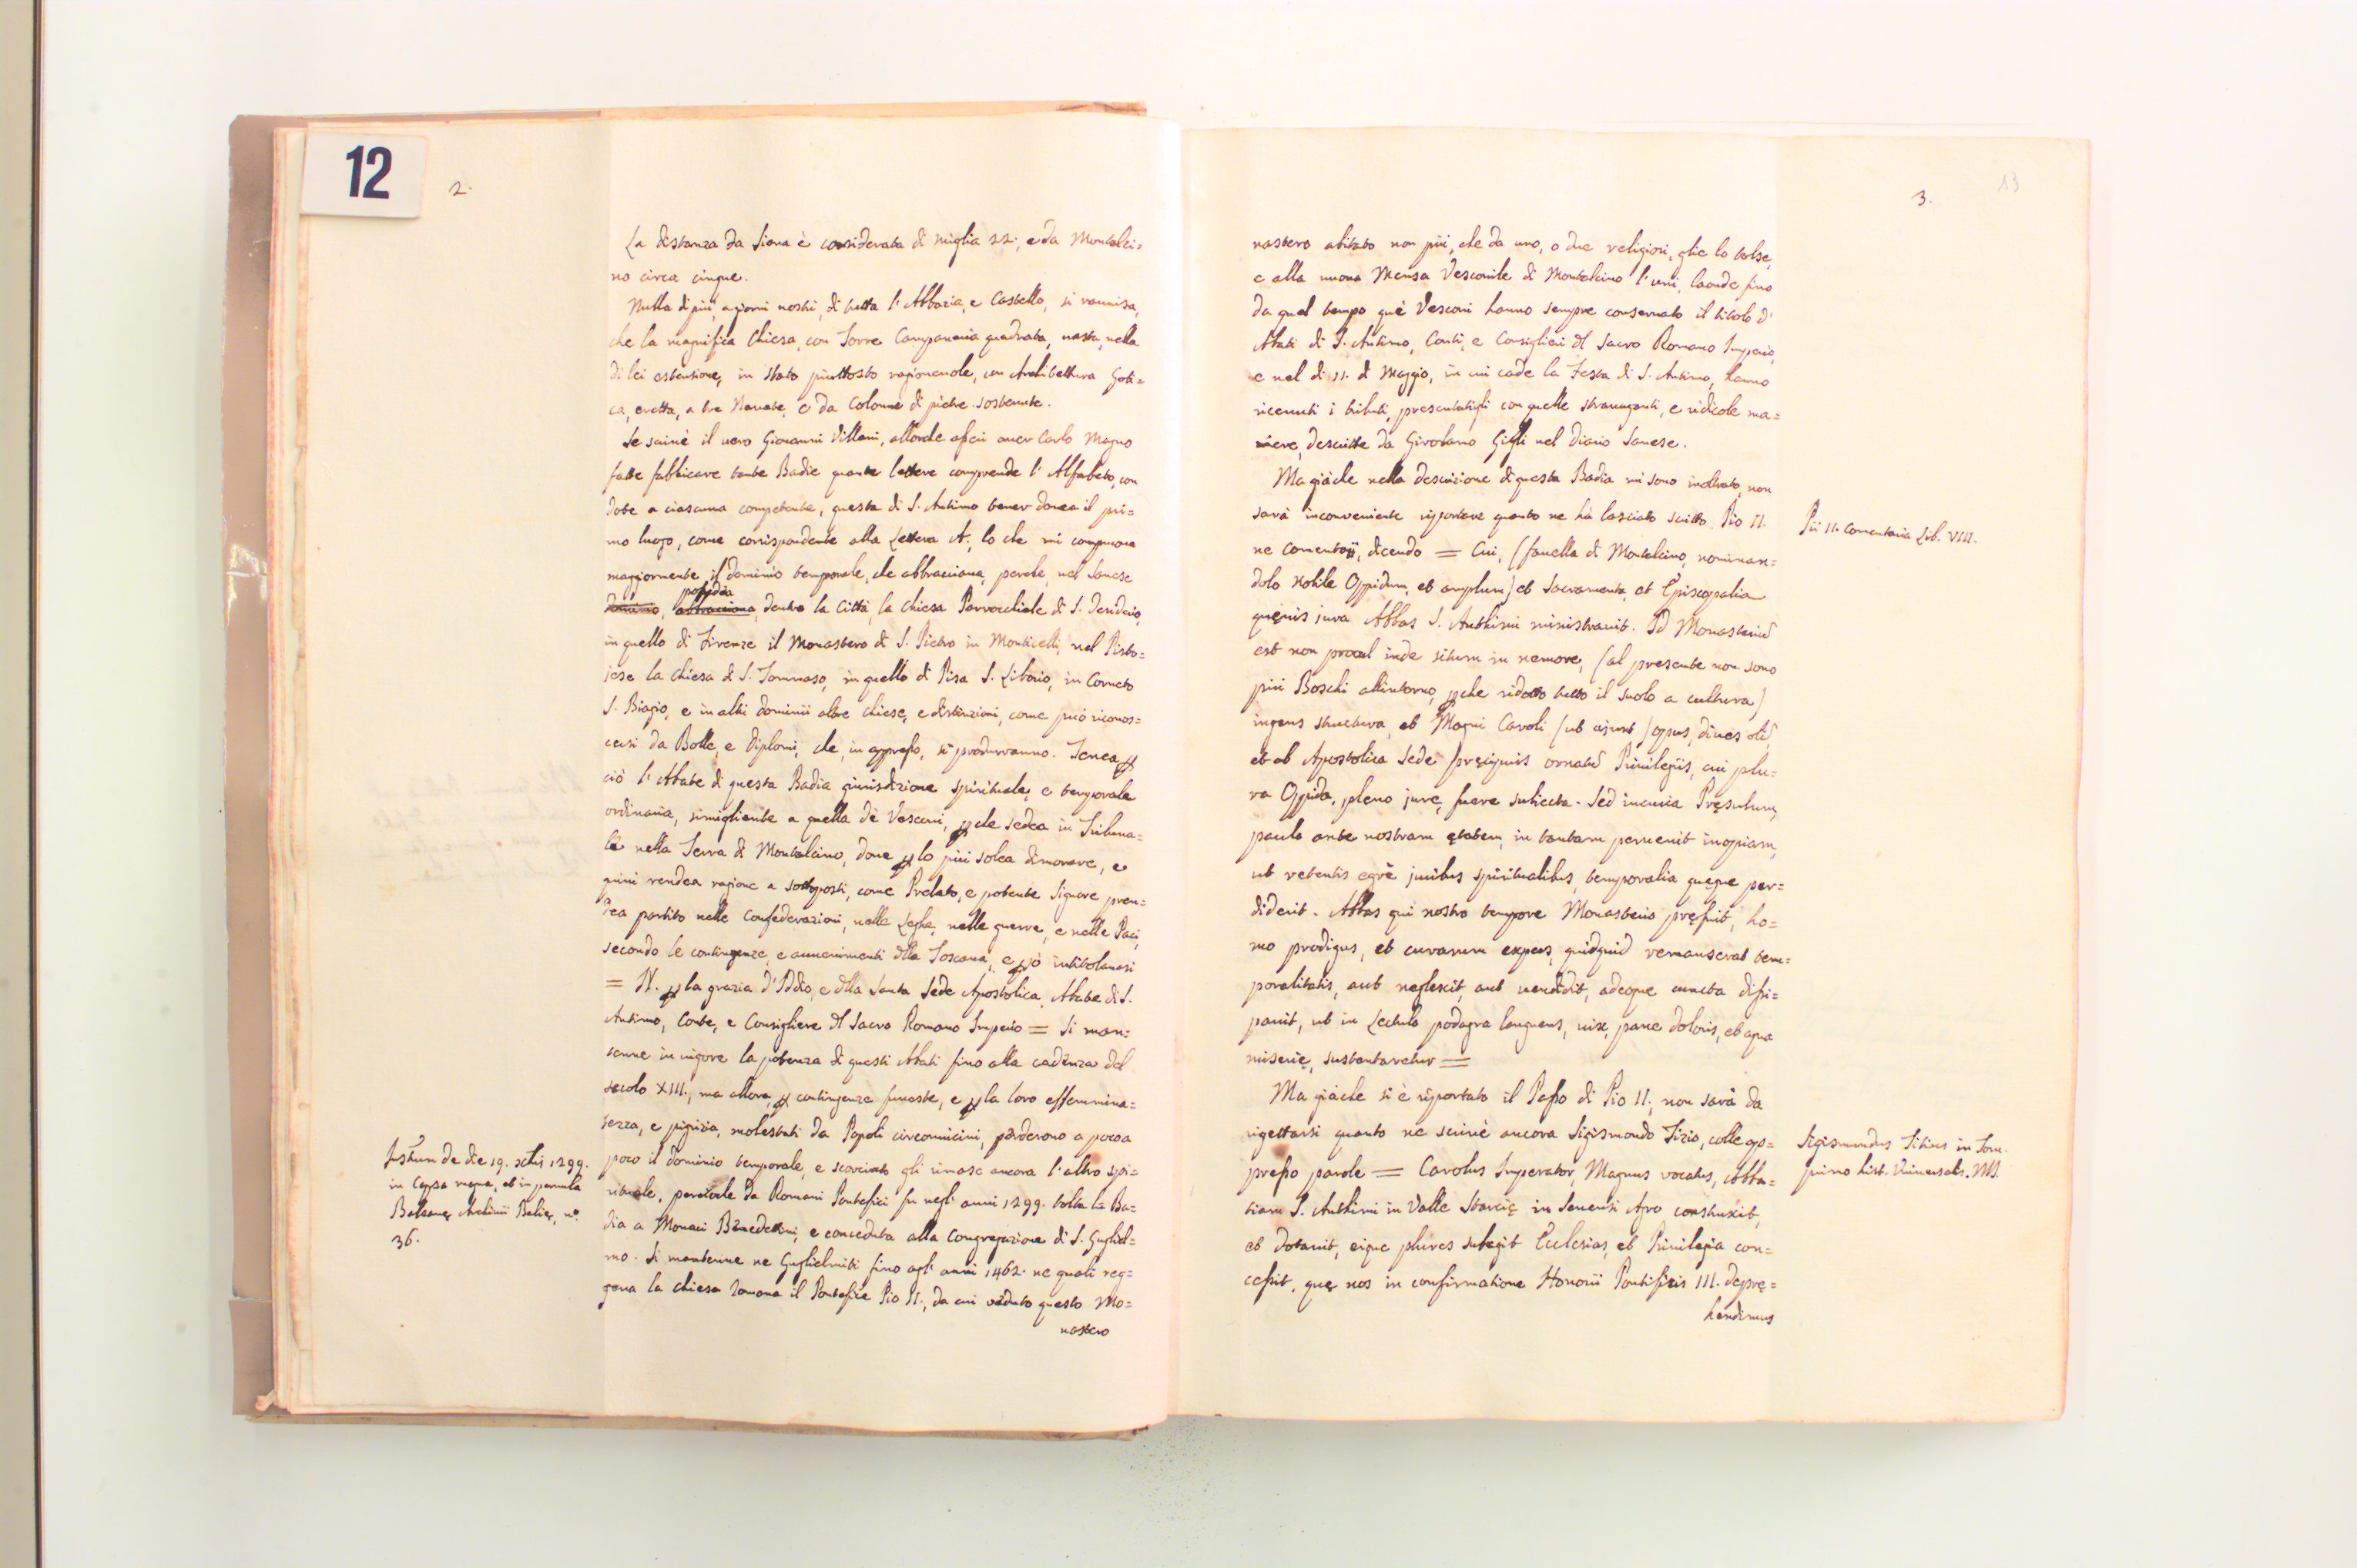 12
2.
La distanza da Siena è considerata di miglia 22; e da Montalci=
no circa cinque.
Nulla di più, a giorni nostri, di tutta l'Abbazia, e Castello, si rauuisa,
che la magnifica Chiesa, con Torre Campanaria quadrata, uasta, nella
di lei estensione, in stato piuttosto ragioneuole, con Architettura Goti=
ca, eretta, a tre Nauate, e da Colonne di pietre sostenute.
Se scriuè il uero Giouanni Villani, allorchè asserì auer Carlo Magno
fatte fabbricare tante Badie quante lettere comprende l'Alfabeto, con
dote a ciascuna competente, questa di S. Antimo tener douea il pri=
mo luogo, come corrispondente alla Lettera A., lo che mi comproua
maggiormente il dominio temporale, che abbracciaua, perchè, nel Sanese
possedea
dominio, abbracciaua, dentro la Città, la Chiesa Parrocchiale di S. Desiderio,
in quello di Firenze il Monastero di S. Pietro in Monticelli, nel Pisto=
jese la Chiesa di S. Tommaso, in quello di Pisa S. Liborio, in Corneto
S. Biagio, e in altri dominii altre chiese, e distinzioni, come può riconos=
cersi da Bolle, e diplomi, che, in appresso, si produrranno. Tenea, p
ciò l'Abbate di questa Badia giurisdizione spirituale, e temporale
ordinaria, simigliante a quella de Vescoui, p che sedea in Tribuna=
le nella Terra di Montalcino, doue p lo più solea dimorare, e
quiui rendea ragione a sottoposti, come Prelato, e potente Signore pren=
dea partito nelle Confederazioni, nelle Leghe, nelle guerre, e nelle Paci,
secondo le contingenze, e auuenimenti dlla Toscana, e p ò intitolauasi
= N. p la grazia d'Iddio, e dlla Santa Sede Apostolica, Abate di S.
Antimo, Conte, e Consigliere dl Sacro Romano Imperio = Si man=
tenne in uigore la potenza di questi Abati fino alla cadenza del
secolo XIII., ma allora, p contingenze funeste, e p la loro effemmina=
tezza, e pigrizia, molestati da Popoli circonuicini, perderono a poco a
poco il dominio temporale, e scorciato gli rimase ancora l'altro spi=
rituale, perciocchè da Romani Pontefici fu negl'anni 1299. tolta la Ba=
dia a Monaci Benedettini, e conceduta alla Congregazione di S. Gugliel=
mo. Si mantenne ne Guglielmiti fino agl'anni 1462. ne quali reg=
geua la Chiesa Romana il Pontefice Pio II., da cui ueduto questo Mo=
nastero
Instrum de die 19.
1299.
in Capsa magna, et in paruula
Balzane Archiuii Balie, n.º
36.
13
3.
nastero abitato non più, che da uno, o due religiosi, glie lo tolse,
e alla nuoua Mensa Vescouile di Montalcino l'unì, laonde fino
da quel tempo que Vescoui hanno sempre conseruato il titolo d'
Abati di S. Antimo, Conti, e Consiglieri dl Sacro Romano Imperio,
e nel dì 11. d Maggio, in cui cade la Festa di S. Antimo, hanno
riceuuti i tributi, presentatigli con quelle strauaganti, e ridicole ma=
niere, descritte da Girolamo Gigli nel Diario Sanese.
Ma giàche nella descrizione di questa Badia mi sono inoltrato, non
sarà inconueniente riportare quanto ne hà lasciato scritto Pio II.
ne Comentarij, dicendo = Cui, (fauella di Montalcino, nominan=
dolo Nobile Oppidum, et amplum) et Sacramenta, et Episcopalia
queuis jura Abbas S. Anthimi ministrauit. Id Monasteriũ
est non procul inde situm in nemore, (al presente non sono
più Boschi all'intorno, p che ridotto tutto il suolo a cultura)
ingens structura, et Magni Caroli (ut ajunt) opus, diues oli,
et ab Apostolica Sede precipuis ornatũ Priuilegiis, cui plu=
ra Oppida, pleno jure, fuere subiecta. Sed incuria Pręsulum,
paulo ante nostram ętatem, in tantam peruenit inopiam,
ut retentis egrè juribus spiritualibus, temporalia queque per=
diderit. Abbas qui nostro tempore Monasterio pręfuit, ho=
mo prodigus, et curarum expers, quidquid remanserat tem=
poralitatis, aut neglexit, aut uendidit, adeoque cuncta dissi=
pauit, ut in Lectulo podagra languens, uix, pane doloris, et aqua
miserię, sustentaretur =
Ma giàche si è riportato il Passo di Pio II., non sarà da
rigettarsi quanto ne scriuè ancora Sigismondo Tizio, colle ap=
presso parole = Carolus Imperator, Magnus vocatus, Abba=
tiam S. Anthimi in Valle Starcię in Senensi Agro construxit,
et dotauit, eique plures subegit Ecclesias, et Priuilegia con=
cessit, quę nos in confirmatione Honorii Pontificis III. depre=
hendimus
Pii II. Comentaria Lib. VIII.
Sigismundus Titius in Tom.
primo hist. Uniuersalis. MS.